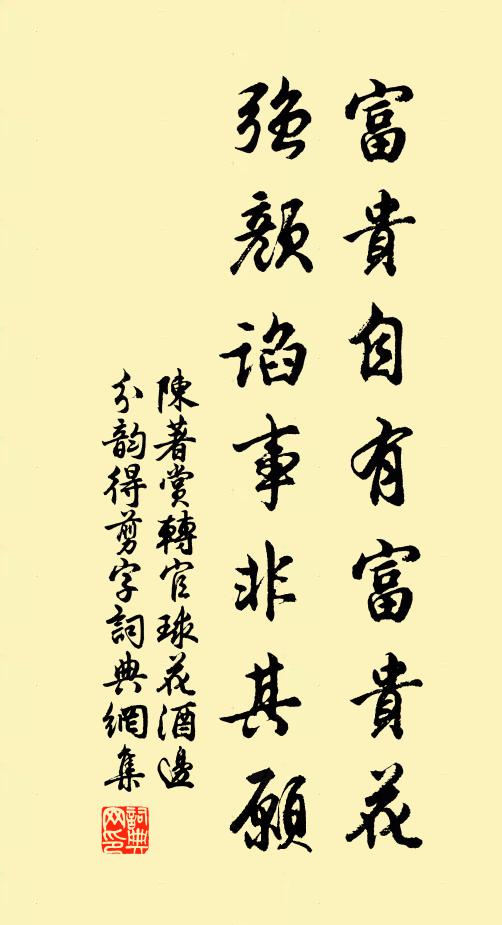 富貴自有富貴花
強顏諂事非其願
陳著賞轉官球花酒邊
分韵得剪字詞典網集
詞典網印